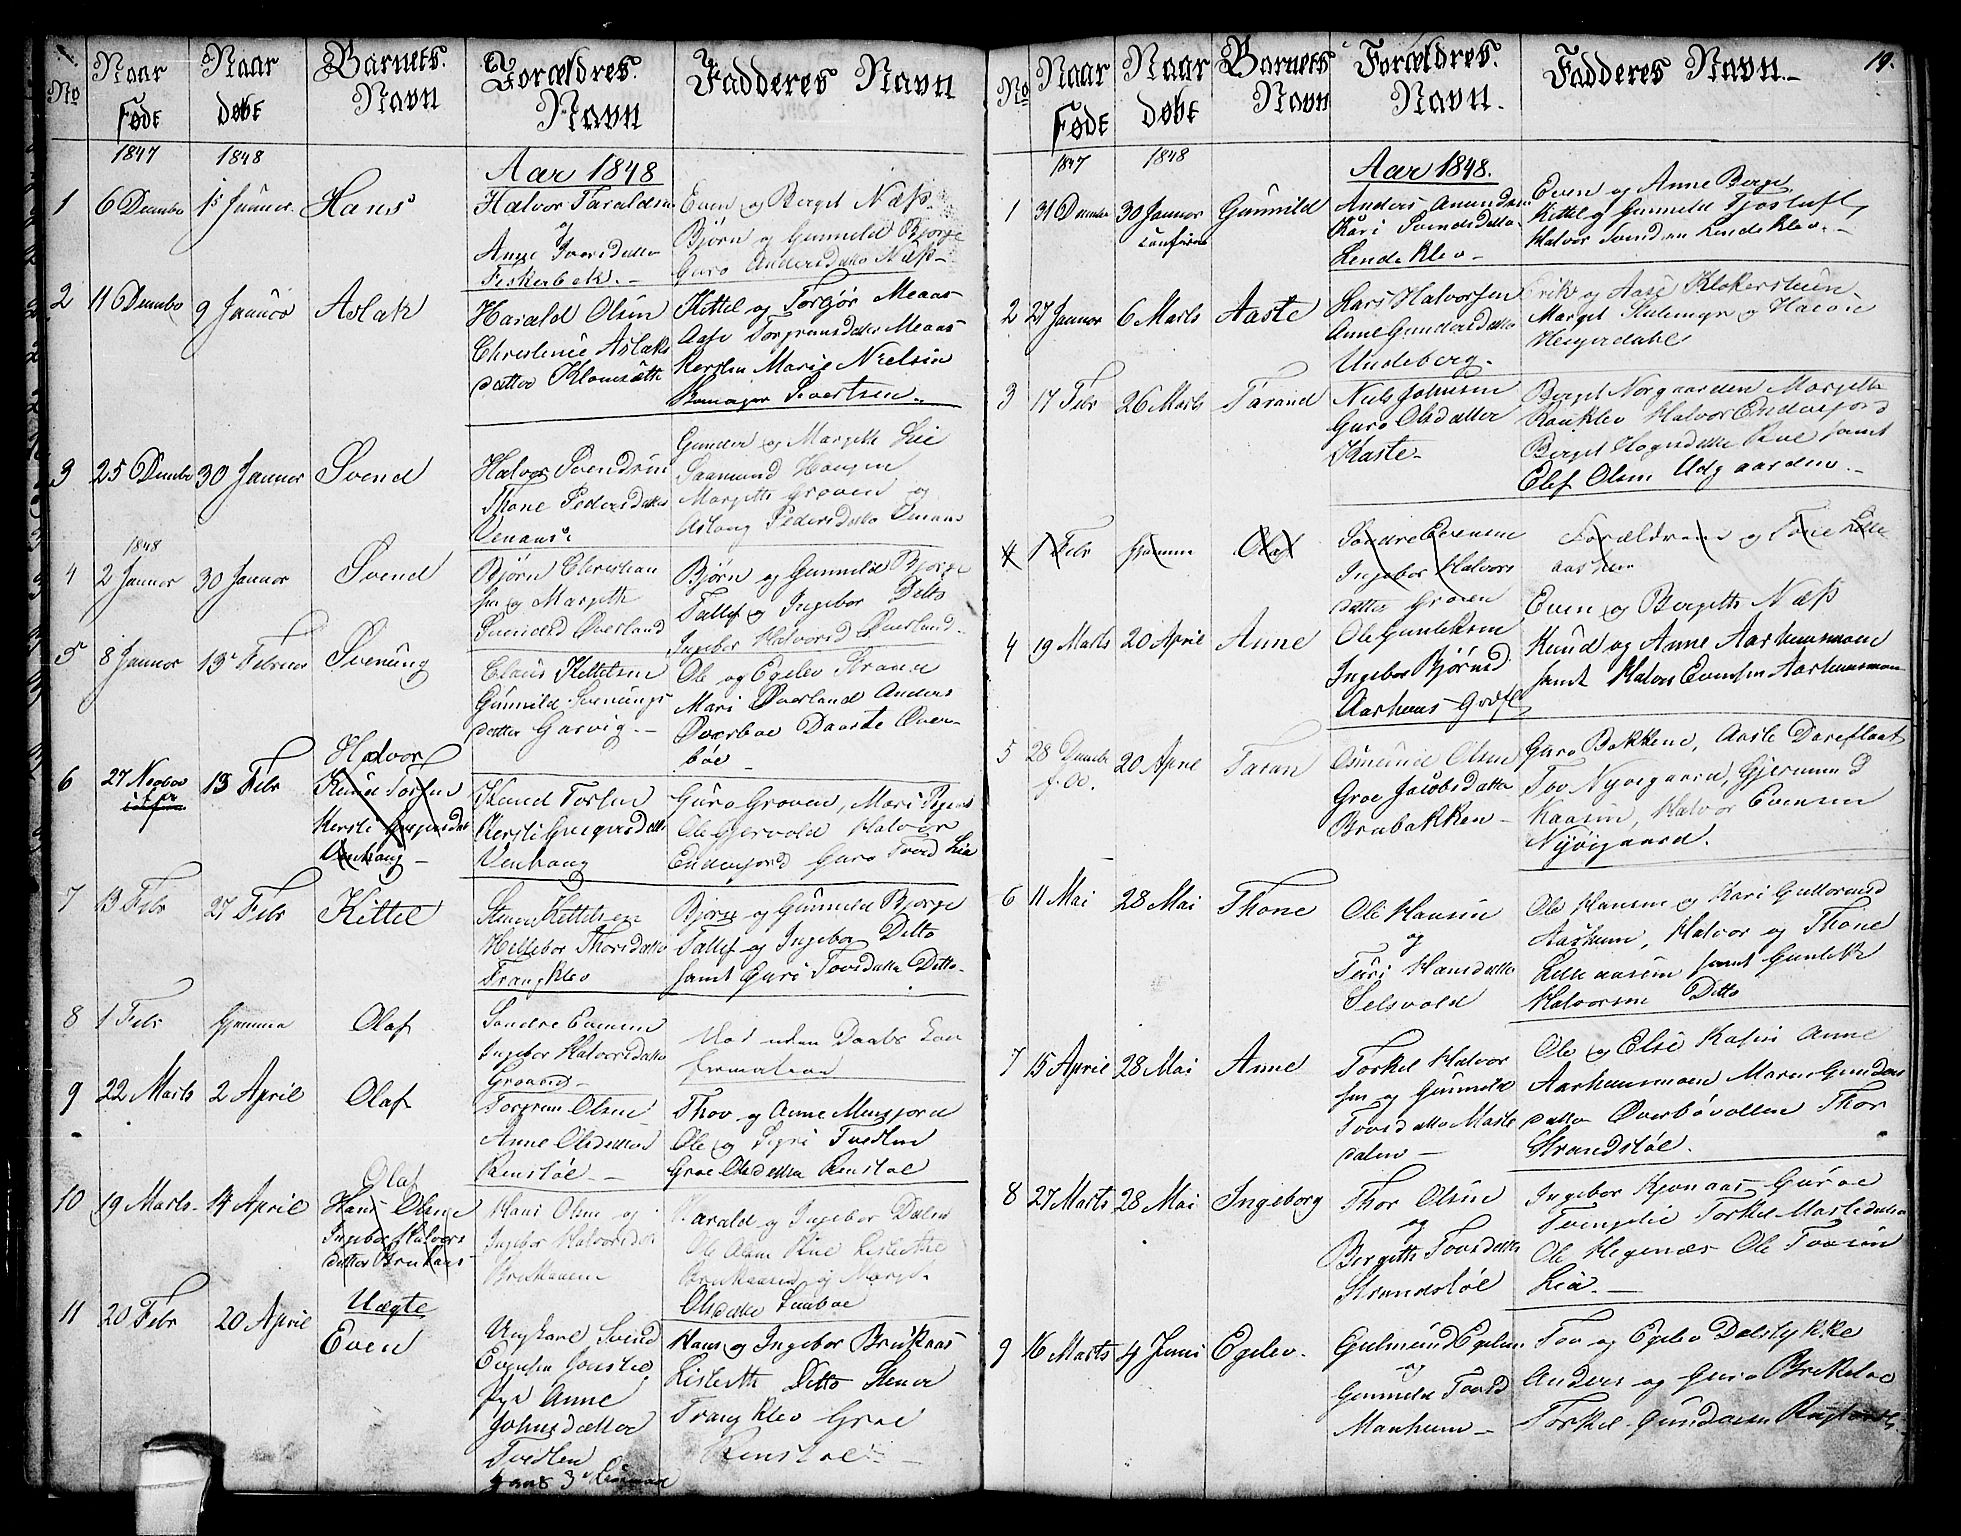 No
Naar Føde
Naar døbt
Barnets Navn
Forældres Navn
Faddares Navn
1847
1848
Aar 1848
1
6 Decmbr
1s Januar
Hans
Halvor Taraldsen
og
Anne Iversdatter
Fiskerbek.
Even og Berget Næss
Bjørn og Gunnild Bjorge
Guro Andersdatter Næss
2
11 Decmbr
9 Januar
Aslak
Harald Olsen
Christenie Aslaks
datter Klomsæth
Kittel og Torgør Meaas
Aase Torgrimsdatter Meaas
Kersten Marie Nielsen
Sivertsen
3
25 Decmbr
30 Januar
Svend
Halvor Svendsen
Thone Pedersdatter
Venaas
Gunder og Margeth Lie
Saamund Haugen
Margeth Groven og
Aslaug Pedersdatter Venaas
1848
4
2 Januar
30 Januar
Svend
Bjørn Christian
sen og Margeth
Svensd Øverland
Bjørn og Gunnild Bjorge
Tallef og Ingebor Ditto
Ingebor Halvorsd Øverland
5
8 Januar
13 Februar
Svenung
Claus Kittelsen
Gunnild Svenungs
datter Garvig
Ole og Egelev Strand
Mari Øverland Anders
Øverboe Daarte Over-
bøe
6
27 Novbr
13 Febr
Halvor
Knud Torsen
Kersti Gregersdatter
Venhaug
Knud Torsen
Kersti Gregersdatter
Venhaug
Guro Groven, Mari
Ole Gjervold Halvor
Endersjord Guro Tovsd Lia
7
13 Febr
27 Febr
Kittel
Simen Kittelsen
Hellebor Thorsdatter
Trangklev
Bjørn og Gunnild Bjorge
Tallef og Ingebor Ditto
samt Guri Tovsdatter Ditto
8
1 Febr
hjemme
Olaf
Sondre Evensen
Ingebor Halvorsdatter
Groven
Død uden Daabs Con
firmation
9
22 Marts
2 April
Olaf
Torgrim Olsen
Anne Olsdatter
Renstøe
Thov og Anne Mensjord
Ole og Sigri Tvedten
Groe Olsdatter Renstøe
10
19 Marts
14 April
Olaf
Hans Olsen
Ingebor Halvors
datter Brukaas
Hans Olsen og
Ingebor Halvorsdat
Brukaasen
Harald og Ingebor Dalen
Ole Olsen Rue Lisbethe
Brukaasen og Marget
Olsdatter
11
20 Febr
20 April
Uægte
Even
Ungkarl Svend
Evensen
Pige Anne
Johnsdatter
Tvedten
Hans og Ingebor Brukaas
Lisbeth Ditto Stener
Trangklev Groe
Renstoe
No
Naar Føde
Naar døbt
Barnets Navn
Forældres Navn.
Fadderes Navn
19.
1847
1848
Aar 1848.
1
31 Decmbr
30 Januar
Gunnild
Anders Amundsen
Kari Svendsdatter
Lendeklev
Even og Anne Berge
Kittel og Gunnild Tjostuft
Halvor Svendsen Lendeklev
2
27 Januar
6 Marts
Aaste
Lars Halvorsen
Anne Gundersdatter
Undeberg
Erik og Aase Klokersteien
Marget
Heigerdahl
3
17 Febr
26 Marts
Tarand
Niels Johnsen
Guro Olsdatter
Kaste
Berget Norgaarden Margethe
Rauklev Halvor Endersjord
Berget Hognsdatter Rue samt
Olef Olsen Udgaarden
4
1 Febr
hjemme
Olaf
Sondre Evensen
Ingebor Halvors
datter Groven
Forældrene og Tone Lille
aashum
4
19 Marts
20 April
Anne
Ole Gunleksen
Ingebor Bjørnsd
Aarhuus
Even og Bergeth Næss
Knud og Anne Aarhuusmoen
samt Halvor Evensen Aarhuusmoen
5
28 Decmbr
20 April
Taran
Osmund Olsen
Groe Jacobsdatter
Brubakken
Guro Bakkene, Aaste Dareflaat
Tov Nyvegaard, Gjermund
Kaasen, Halvor Evensen
Nyvegaard.
6
11 Mai
28 Mai
Thone
Ole Hansen
og
Turi Hansdatter
Selsvold
Ole Hansen og Kari Guttormsd
Aashum, Halvor og Thone
Lilleaasen samt Gunlek
Halvorsen Ditto
7
15 April
28 Mai
Anne
Torkel Halvor
sen og Gunnild
Tovsdatter Masle
dalen
Ole og Else Kasin Anne
Aarhuusmoen Maren Gunders
datter Øverbøvollen Thor
Strandstøe.
8
27 Marts
28 Mai
Ingeborg
Thor Olsen
og
Bergith Tovsdatter
Strandstøe
Ingebor Kjonaas Guroe
Tvengelie Torkel Masledalen
Ole Hegenæs Ole Tovsen
Lia.
9
16 Marts
4 Juni
Egelev.
Gulmund Egelsen
og
Gunnild Tovsd
Manheim
Tov og Egelev Dalstykke
Anders og Guro Brekstoe
Torkel Gundersen